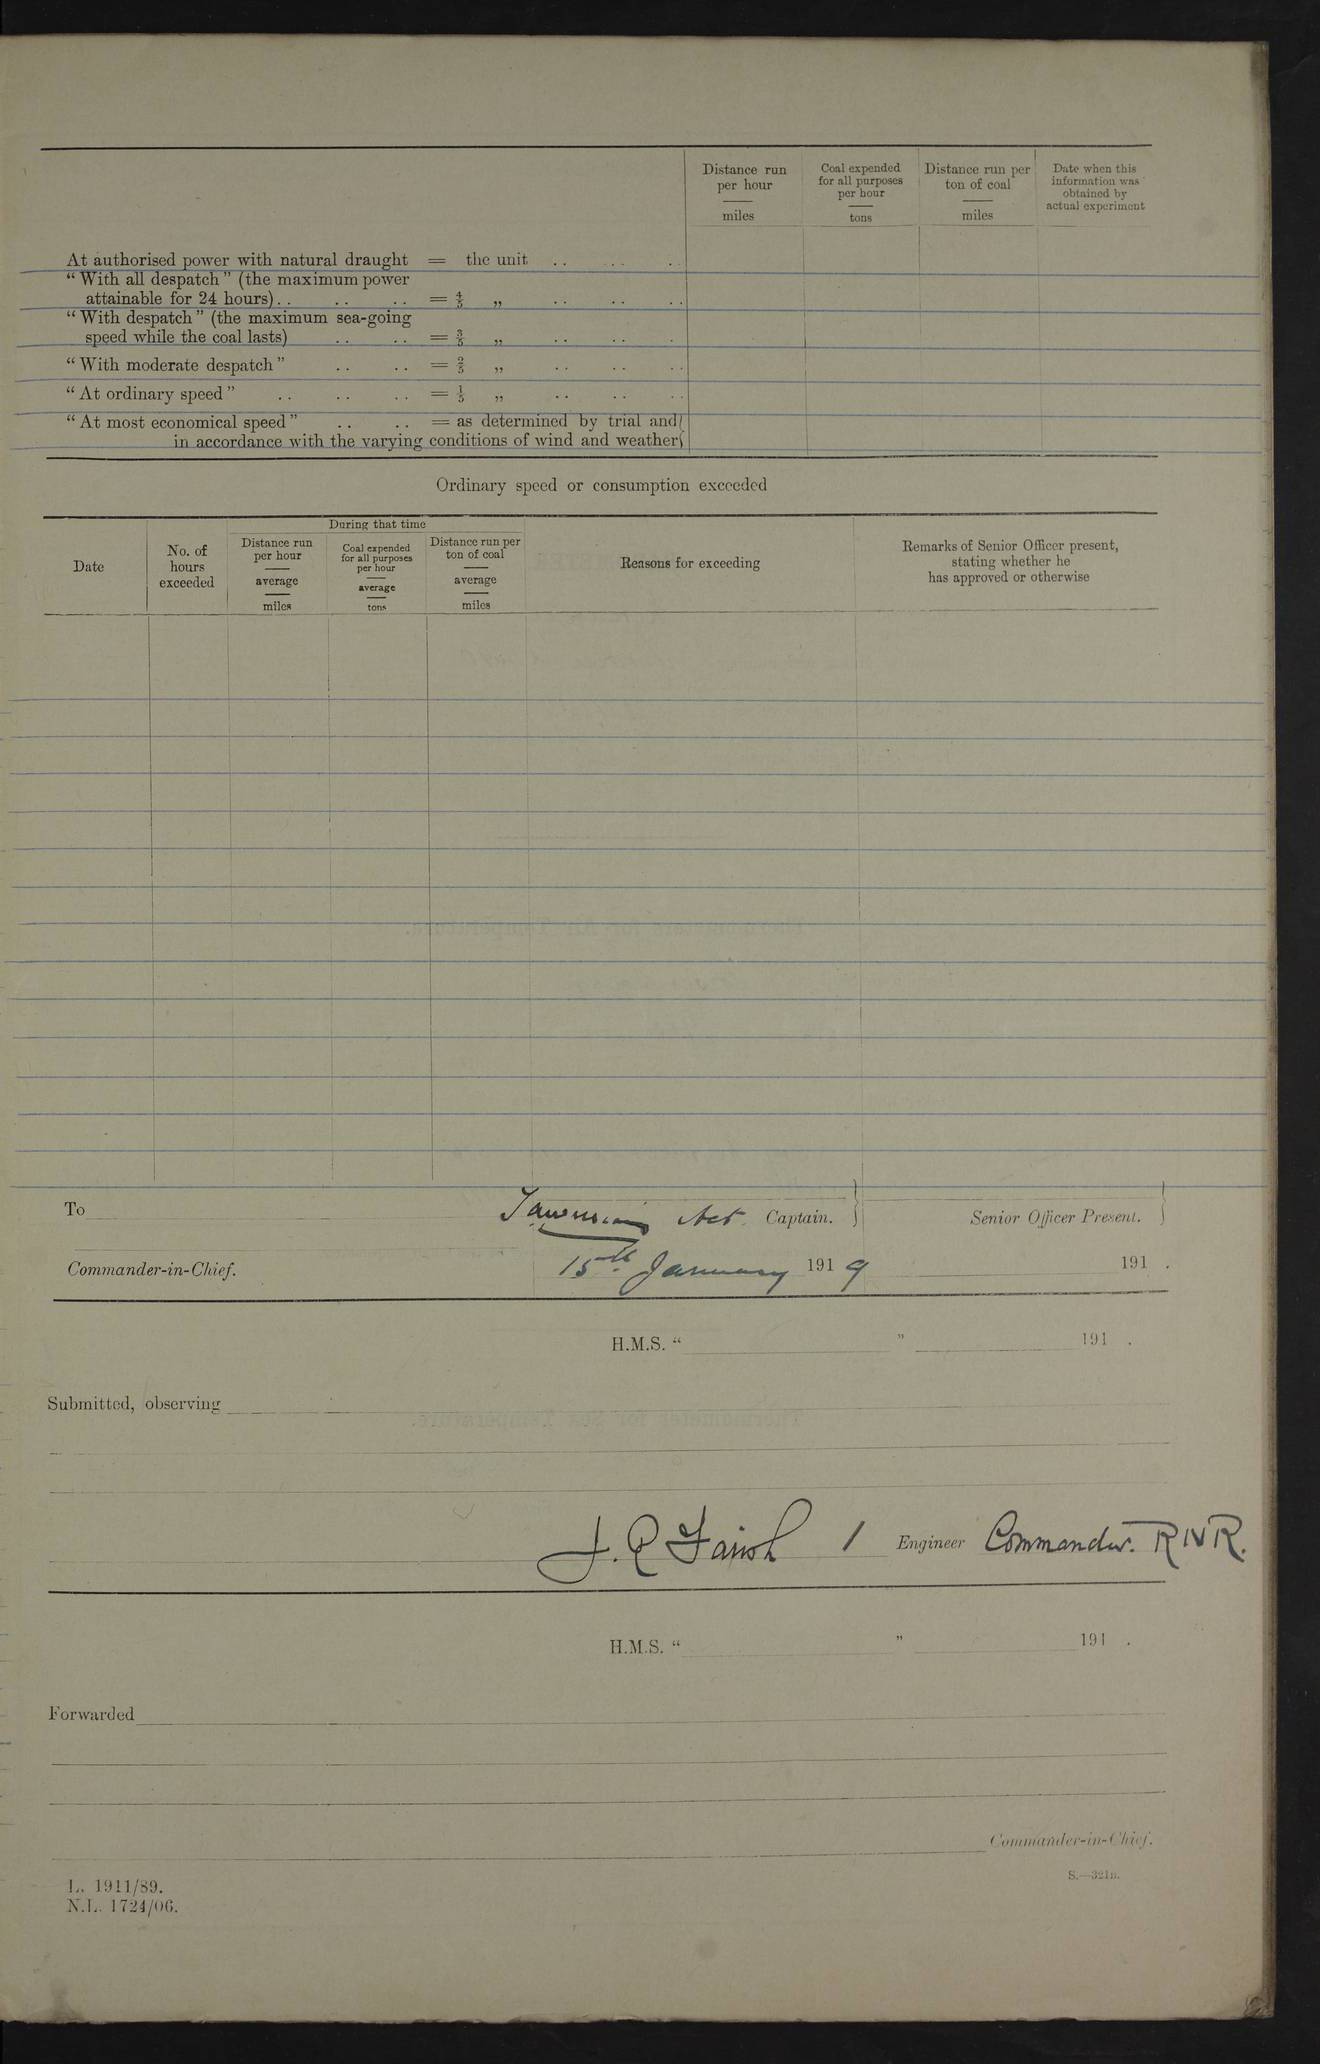 Distance run per hour — miles
Coal expended for all purposes per hour — tons
Distance run per ton of coal — miles
Date when this information was obtained by actual experiment
At authorised power with natural draught = the unit .. .. ..
“With all despatch” (the maximum power
attainable for 24 hours) .. .. .. = 4/5 „ .. .. ..
“With despatch” (the maximum sea-going
speed while the coal lasts) .. .. = 3/5 „ .. .. .
“With moderate despatch” .. .. = 2/5 „ .. .. ..
“At ordinary speed” .. .. .. = 1/5 „ .. .. ..
“At most economical speed” .. .. = as determined by trial and
in accordance with the varying conditions of wind and weather
Ordinary speed or consumption exceeded
Date
No. of hours exceeded
During that time
Distance run per hour — average — miles
Coal expended for all purposes per hour — average — tons
Distance run per ton of coal — average — miles
Reasons for exceeding
Remarks of Senior Officer present, stating whether he has approved or otherwise
To
Act. Captain.
Senior Officer Present.
Commander-in-Chief.
15th January 1919
191 .
H.M.S. “ ” 191 .
Submitted, observing
J. R Farish Engineer Commander. RNR.
H.M.S. “ ” 191 .
Forwarded
Commander-in-Chief.
S.—321B.
L. 1911/89.
N.L. 1724/06.